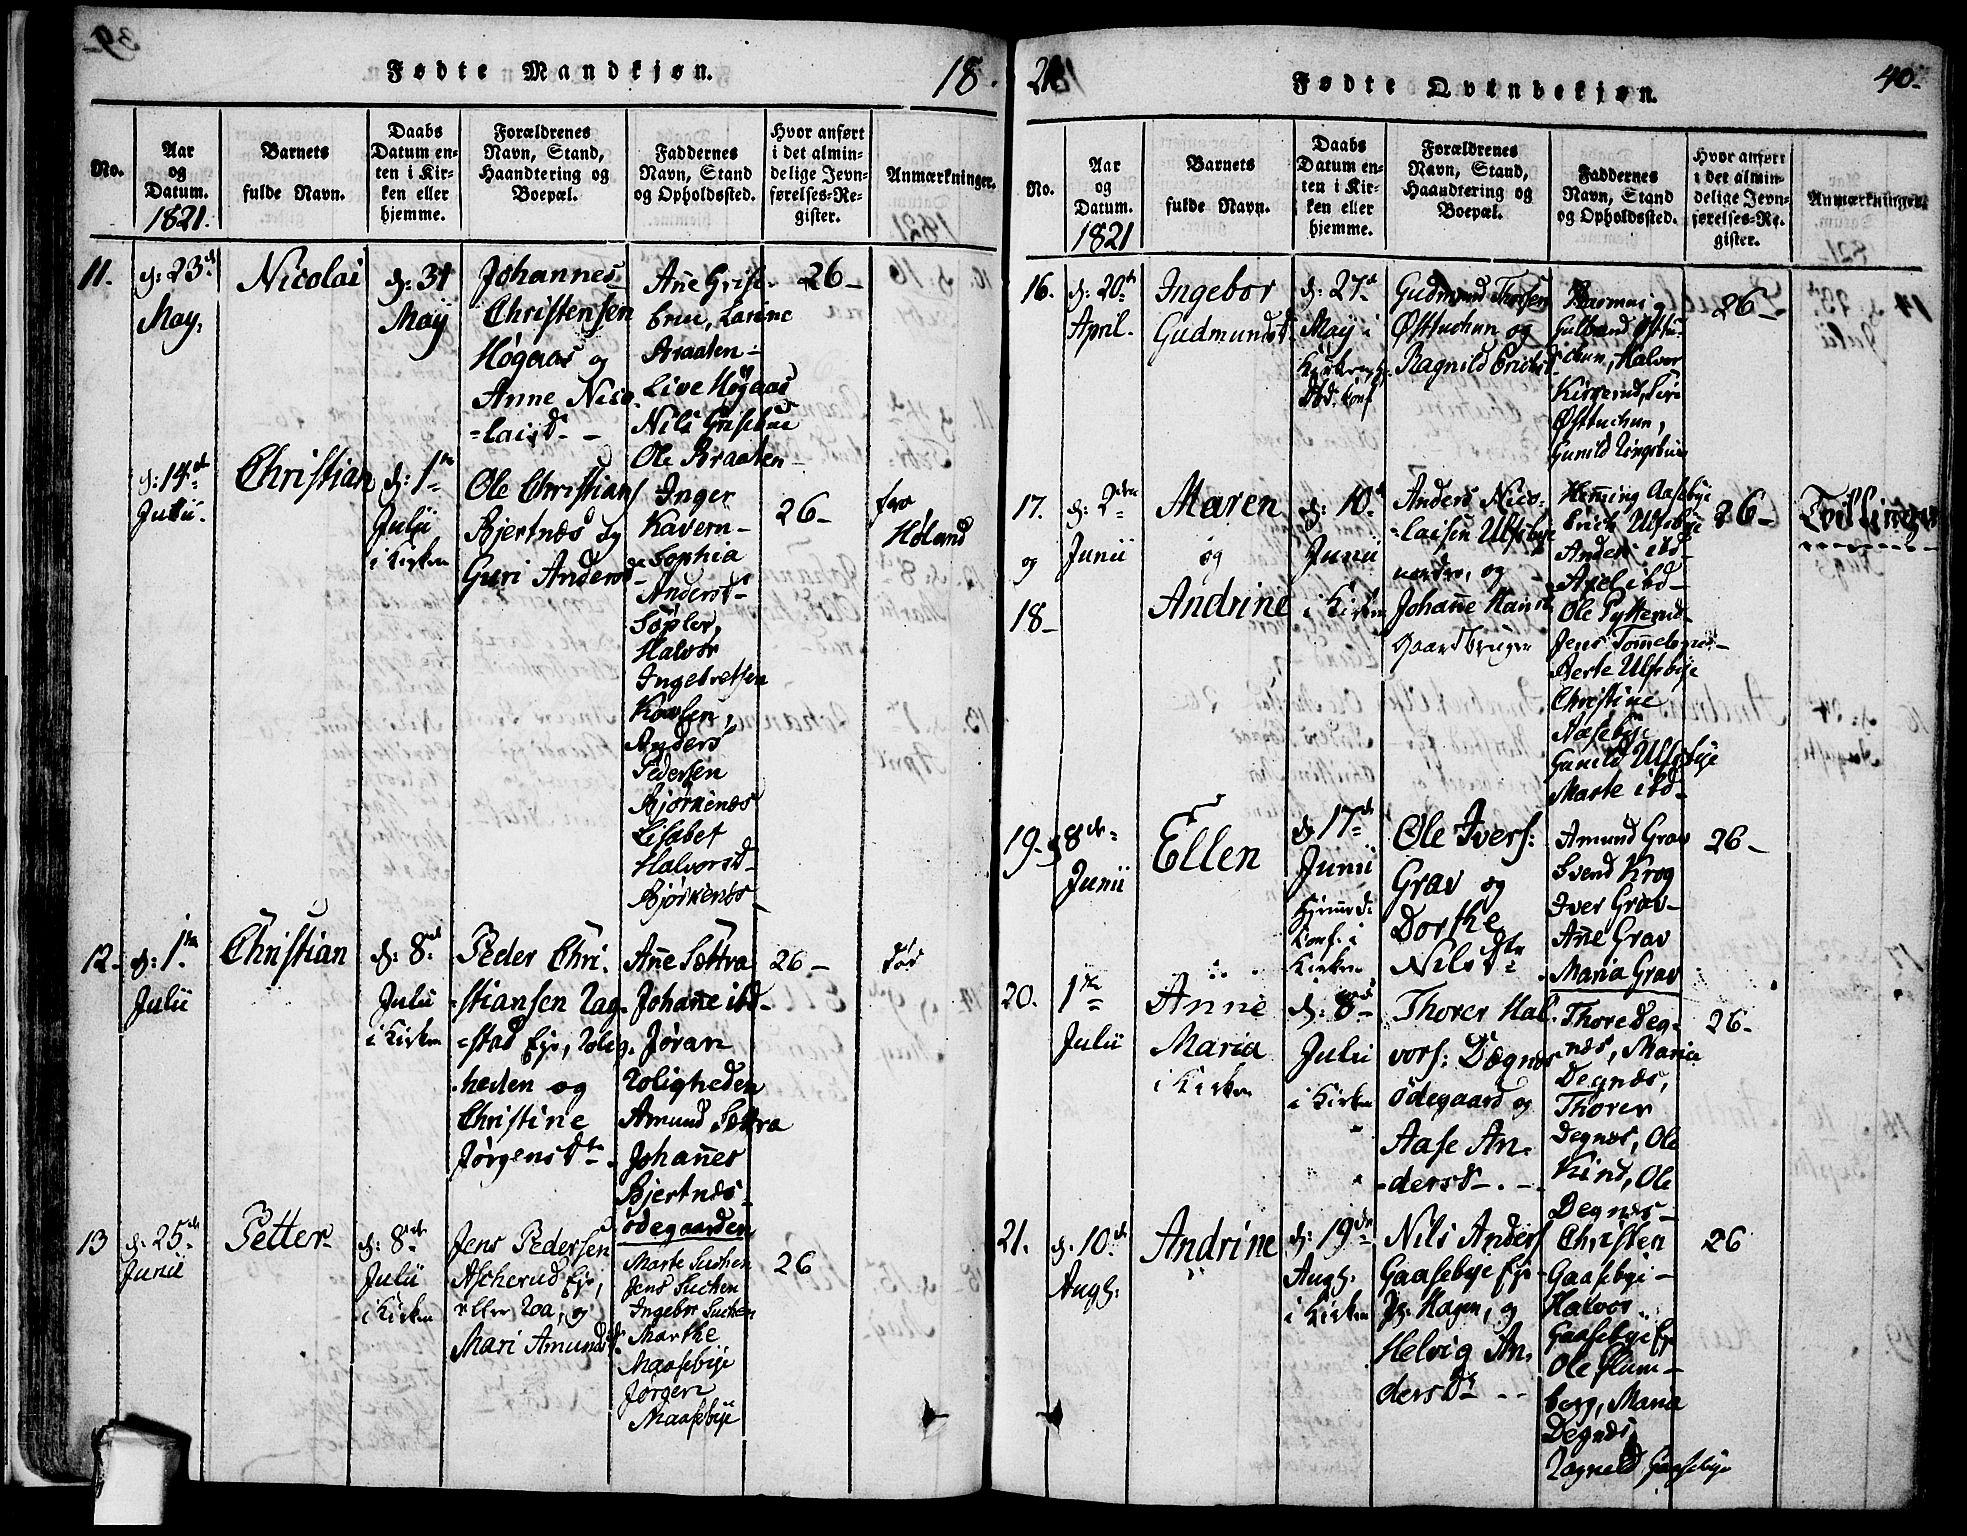 Fødte Mandkjøn.
18
No.
Aar
og
Datum.
1821.
Barnets
fulde Navn.
Daabs
Datum en-
ten i Kir-
ken eller
hjemme.
Forældrenes
Navn, Stand,
Haandtering og
Boepæl.
Faddernes
Navn, Stand
og Opholdssted.
Hvor anført
i det almin-
delige Jevn-
førelses-Re-
gister.
Anmærkninger.
11.
d: 23d
May.
Nicolai
d: 31
Maÿ
Johannes
Christensen
Høgaas og
Anne Nico
=laisd. -
Live Høgaas
Ole Braaten
26-
d: 14de
Julii.
Christian
d: 1te
Julii
i Kirken
Ole Christians
Bjertnæs og
Guri Andersd
Inger
Kavern-
Sophia
Anderst-
Halvor
Ingebretsen
Anders
Pedersen
Bjørkenæs
Lisabet
Halvorsd-
Bjørkenæs
26-
fra
Høland
12-
d: 1te
Julii
Christian
d: 8de
Julii
i Kirken
Peder Chri-
=stiansen Rag-
=stad Eje, Rolig-
heden og
Christine
Jørgensdtr.
Añe Sættra
Johañe ibd-
Jøran
Roligheden
Amund Sættra
Johañes
Bjertnæs-
ødegaarden
26-
13
d. 25de
Junii
Petter
d: 8de
Julii
i Kirken
Jens Pedersen
Ascherud Eje,
eller Roa, og
Mari Amundsd.
Marte Suchen
Jens Suchen
Ingebor Suchen
Marthe
Maasebÿe
Jørgen
Maasebÿe
26
21
Fødte Qvindekjøn.
40.
No.
Aar
og
Datum.
1821
Barnets
fulde Navn.
Daabs
Datum en-
ten i Kir-
ken eller
hjemme.
Forældrenes
Navn, Stand,
Haandtering og
Boepæl.
Faddernes
Navn, Stand
og Opholdssted.
Hvor anført
i det almin-
delige Jevn-
førelses-Re-
gister.
Anmærkninger.
16.
d. 20de
April.
Ingebor
Gudmundsd.
d: 27d
Maÿ i
Gudmund Thorsen
Østtuchun og
Ragnild Erichsd
Rasmus og
Gulbrand Østtu-
chun, Halvor
Kiserud, Siri
Østtuchun,
Gunild
26-
17.
og
18-
d: 2den
Junii
Maren
og
Andrine
d: 10d
Junii
i Kirken
Anders Nico-
=laisen Ulfsbÿe
nordre, og
Johañe Hansd
Gaardbruger
Heñing Aasebÿe
Erich Ulfsbÿe
Anders ibd-
Axel ibd-
Ole Pytterud
Jens
Berte Ulfsbÿe
Christine
Aasebÿe
Gunild Ulfsbÿe
Marte ibd-
26-
Tvillinger
19-
8de
Junii
Ellen
d. 17de
Junii
Hjemmed:
Conf. i
Kirken
Ole Ivers:
Grav og
Dorthe
Nilsdtr
Amund Grav
Svend Krog
Iver Grav-
Añe Grav
Maria Grav
26-
20.
1te
Julii
Anne
Maria
i Kirken
d: 8de
Julii
i Kirken
Thorer Hal-
vors: Dægnæs
ødegaard og
Aase An-
=dersd-.-
Thore Deg-
næs, Maria
Degnæs,
Thorer
Degnæs, Ole
Kind, Ole
Degnæs-
26-
21.
d. 10de
Augs.
Andrine
d: 19de
Augs.
i Kirken
Nils Anders
Gaasebÿe Eje
Pl. Hagen, og
Helvig An-
dersdtr--
Christen
Gaasebÿe-
Halvor
Gaasebÿe Ej
Ole Plum-
berg, Maria
Degnæs
Ragnild Gaasebÿe
26